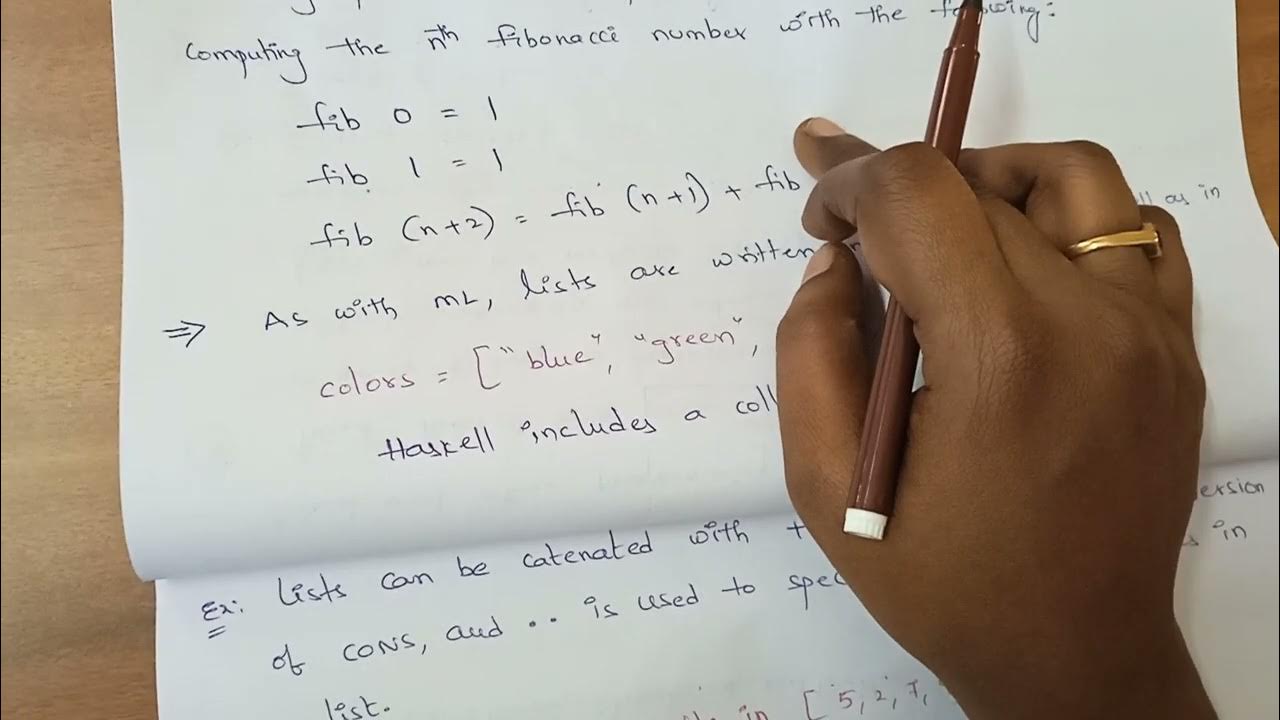 Computing the nth fibonacci number worth the following:
fib 0 = 1
fib 1 = 1
fib (n+2) = fib (n+1) + fib
⇒ As with ML, lists are written as in
colors = ["blue", "green",
Haskell includes a coll
ersion
Ex: Lists can be catenated with + in
of CONS, and .. is used to spec
list.
in [5, 2, 7,